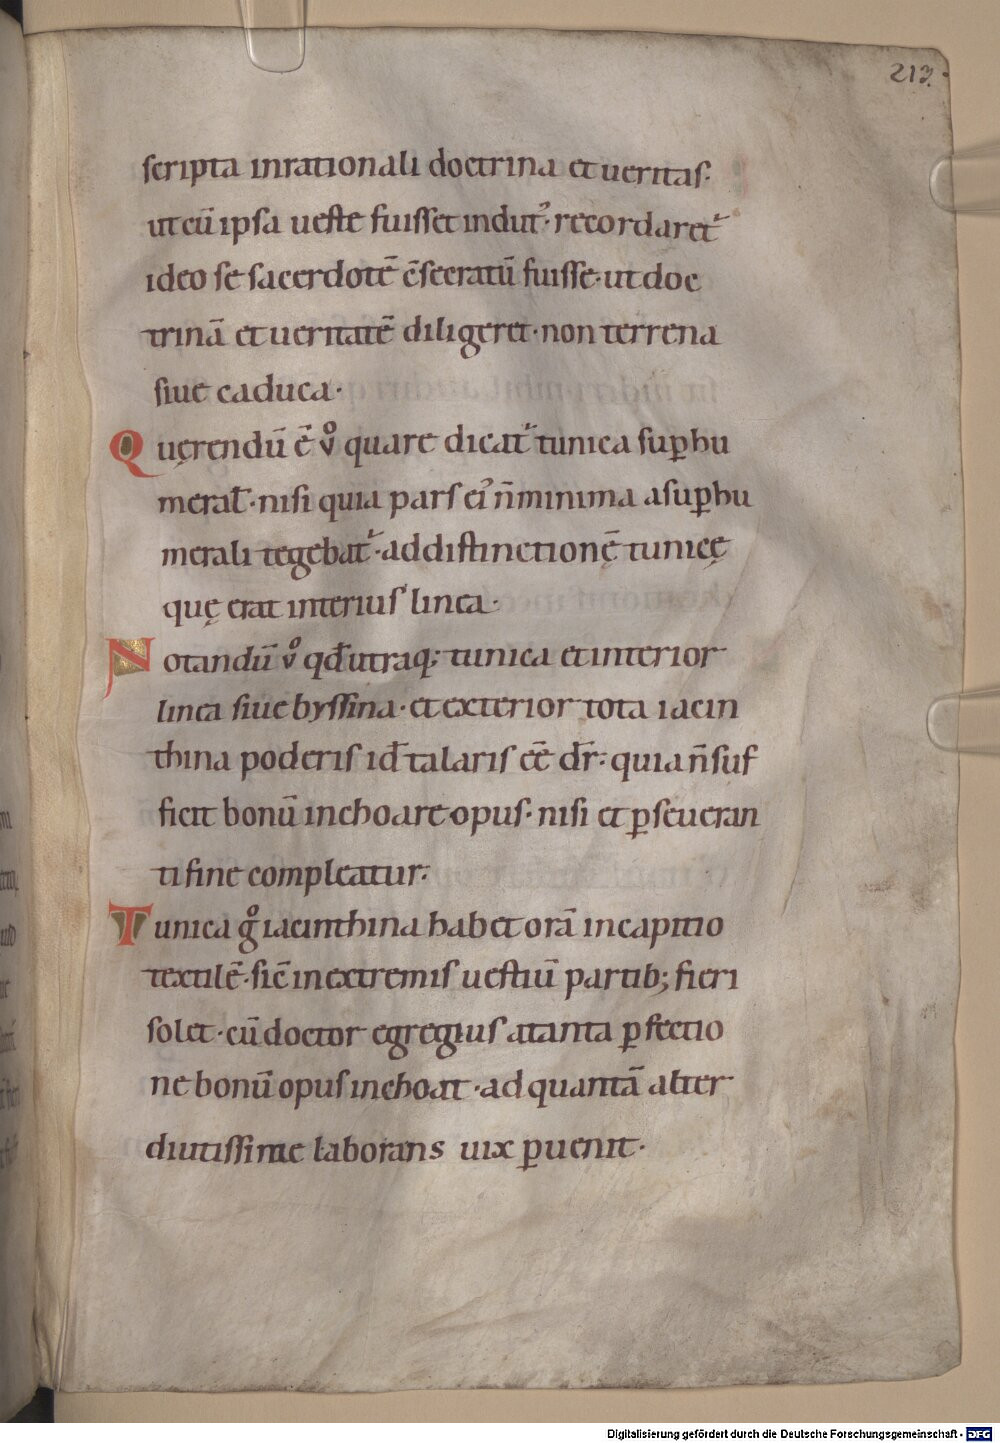 213.
scripta inrationali doctrina et ueritas.
ut cū ipsa ueste fuisset indut᾿· recordaret᷑
ideo se sacerdotē c̄secratū fuisse· ut doc
trinā et ueritatē diligeret· non terrena
siue caduca·
Quęrendū ē v̊ quare dicat᷑ tunica sup̱hu
merał· nisi quia pars ei᾿ n̄ minima a sup̱hu
merali tegebat᷑· ad distinctionę̄ tunicę
quę erat interius linea·
Notandū v̊ qđ utraq; tunica et interior
linea siue byssina· et exterior tota iacin
thina poderis iđ talaris eē dr̄: quia n̄ suf
ficit bonū inchoare opus· nisi et p̱seueran
ti fine compleatur:
Tunica g̊ iacinthina habet orā incapitio
textilē· sic̄ in extremis uestiū partib; fieri
solet· cū doctor egregius atanta p̱fectio
ne bonū opus inchoat· ad quantā alter
diutissime laborans uix p̱uenit·
Digitalisierung gefördert durch die Deutsche Forschungsgemeinschaft - DFG